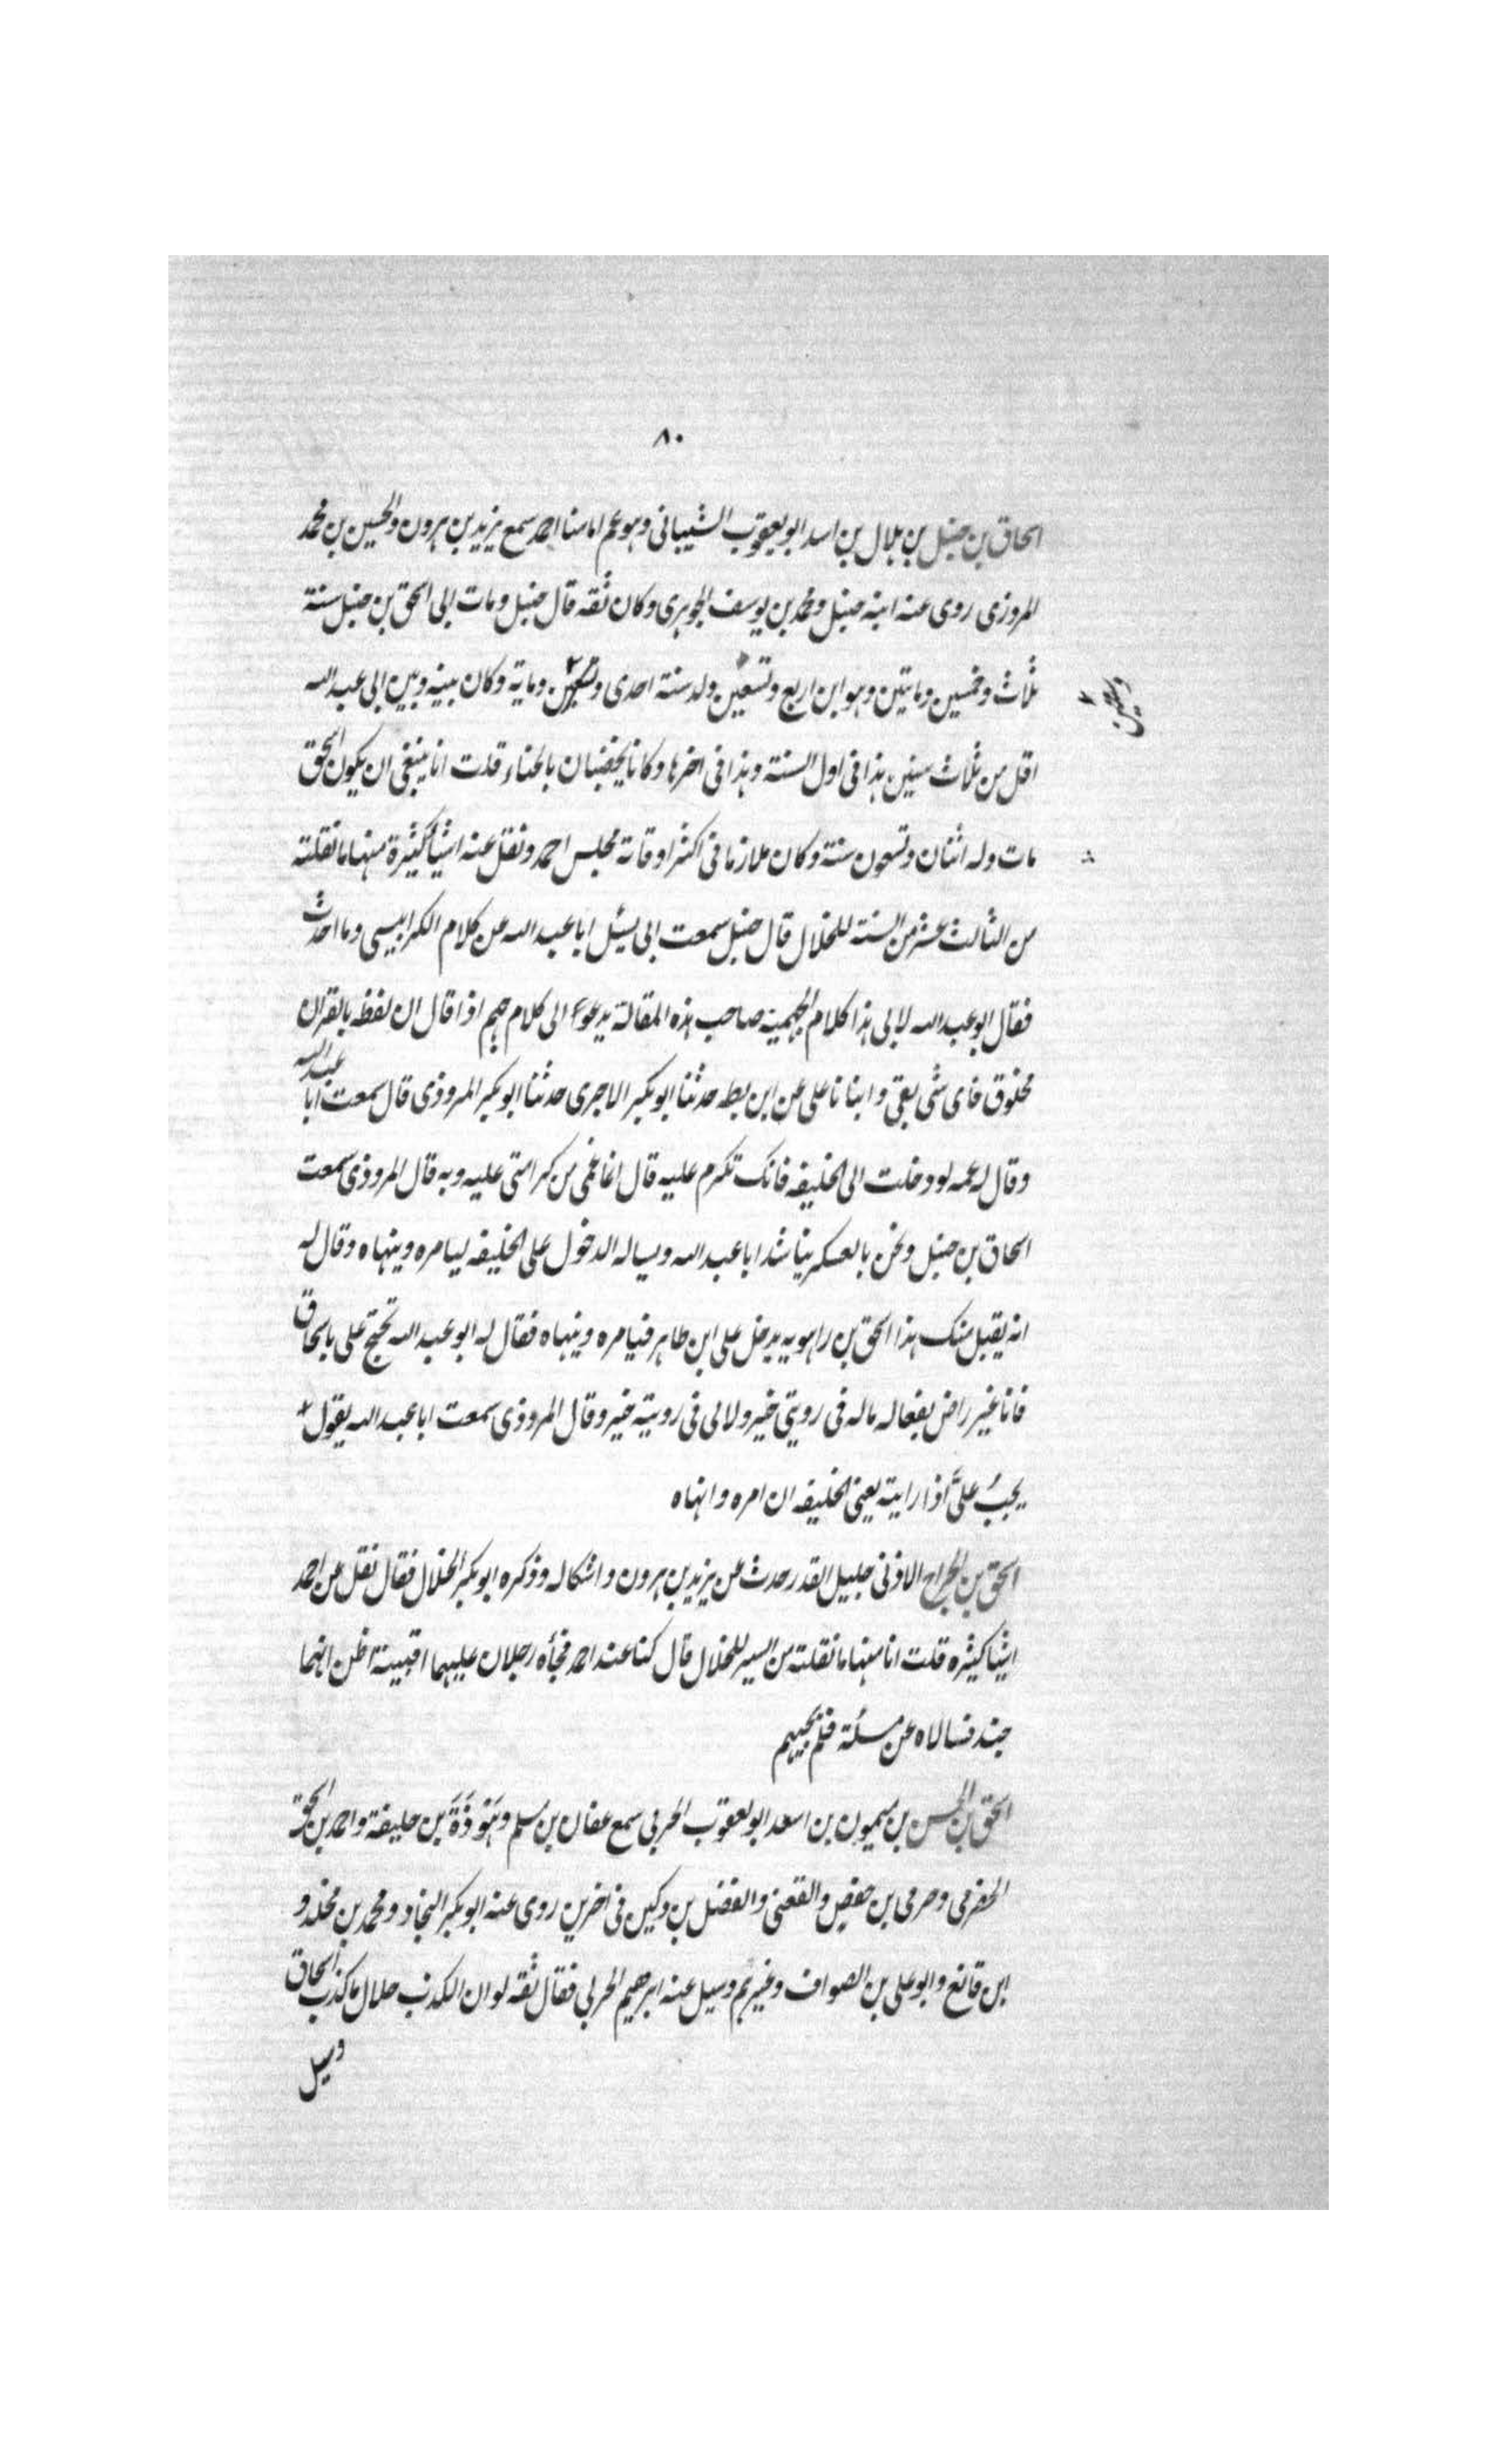 ٨٠
اسحاق بن حنبل بن هلال بن اسد ابو يعقوب الشيبانى وهو عم امامنا احمد سمع يزيد بن هرون والحسين بن محمد
المروزى روى عنه ابنه حنبل ومحمد بن يوسف الجوهرى وكان ثقه قال حنبل ومات ابى اسحق بن حنبل سنة
ثلاث وخمسين وماىتين وهو ابن اربع وتسعين ولد سنة احدى وماية وكان بينه وبين ابى عبد الله
اقل من ثلاث سنين هذا فى اول السنة وهذا فى اخرها وكانا يخضبان بالحناء قلت انا ينبغى ان يكون اسحق
مات وله اثنان وتسعون سنة وكان ملازما فى اكثر اوقاته مجلس احمد ونقل عنه اشيأ كثيرة منها ما نقلته
من الثالث عشر من السنة للخلال قال حنبل سمعت ابى يسئل ابا عبد الله عن كلام الكرابيسى وما احدث
فقال ابو عبد الله لابى هذا كلام الجهمية صاحب هذه المقالة يدعوا الى كلام جهم اذا قال ان لفظه بالقران
مخلوق فاى شى بقى وانبانا على عن ابن بطه حدثنا ابو بكر الاجرى حدثنا ابو بكر المروذى قال سمعت ابا عبد الله
وقال له عمه لو دخلت الى الخليفه فانك تكرم عليه قال انما غمى من كرامتى عليه وبه قال المروذى سمعت
اسحاق بن حنبل ونحن بالعسكر يناشد ابا عبد الله ويساله الدخول على الخليفه ليامره وينهاه وقال له
انه يقبل منك هذا اسحق بن راهويه يدخل على ابن طاهر فيامره وينهاه فقال له ابو عبد الله تحتج على باسحاق
فانا غير راض بفعاله ماله فى رويتى خير ولا لى فى رويته خير وقال المروذى سمعت ابا عبد الله يقول
يجب علىَّ اذا رايته يعنى الخليفه ان امره وانهاه
اسحق بن الجراح الاذنى جليل القدر حدث عن يزيد بن هرون واشكاله وذكره ابو بكر الخلال فقال نقل عن احمد
اشيا كثيره قلت انا منها ما نقلته من السير للخلال قال كنا عند احمد فجأه رجلان عليهما اقبية اظن انهما
جند فسالاه عن مسئلة فلم يجبهم
اسحق بن الحسن بن ميمون بن اسعد ابو يعقوب الحربى سمع عفان بن مسلم وهَوذَةَ بن خليفة واحمد بن اسحق
الحضرمى وحرمى بن حفص والقعنبى والفضل بن دكين فى اخرين روى عنه ابو بكر النجاد ومحمد بن مخلد و
ابن قانع وابو على بن الصواف وغيرهم وسيل عنه ابرهيم الحربى فقال ثقه لو ان الكذب حلال ما كذب اسحاق
وسيل